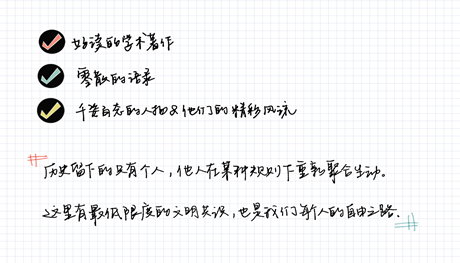 好读的学术著作
零散的语录
千姿百态的人物及他们的精彩风流
历史留下的只有个人，他人在某种规则下重新聚合生动。
这里有最低限度的文明共识，也是我们每个人的自由之路。